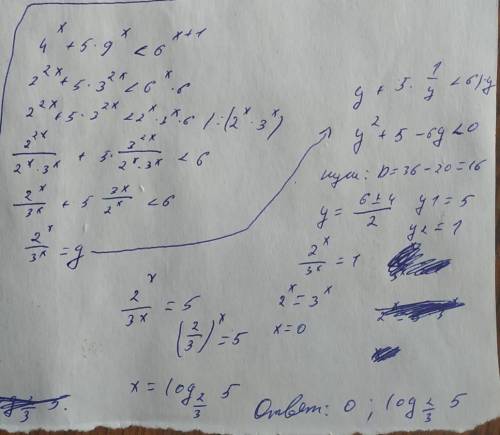 4^x + 5·9^x < 6^{x+1}
2^{2x} + 5·3^{2x} < 6^x · 6
2^{2x} + 5·3^{2x} < 2^x · 3^x · 6 | : (2^x · 3^x)
2^{2x}/(2^x · 3^x) + 5 · 3^{2x}/(2^x · 3^x) < 6
2^x/3^x + 5 3^x/2^x < 6
2^x/3^x = y
y + 5 · 1/y < 6 | · y
y^2 + 5 - 6y < 0
нули: D = 36 - 20 = 16
y = (6 ± 4)/2 y1 = 5
y2 = 1
2^x/3^x = 1
2^x = 3^x
x = 0
2^x/3^x = 5
(2/3)^x = 5
x = log_{2/3} 5
Ответ: 0 ; log_{2/3} 5